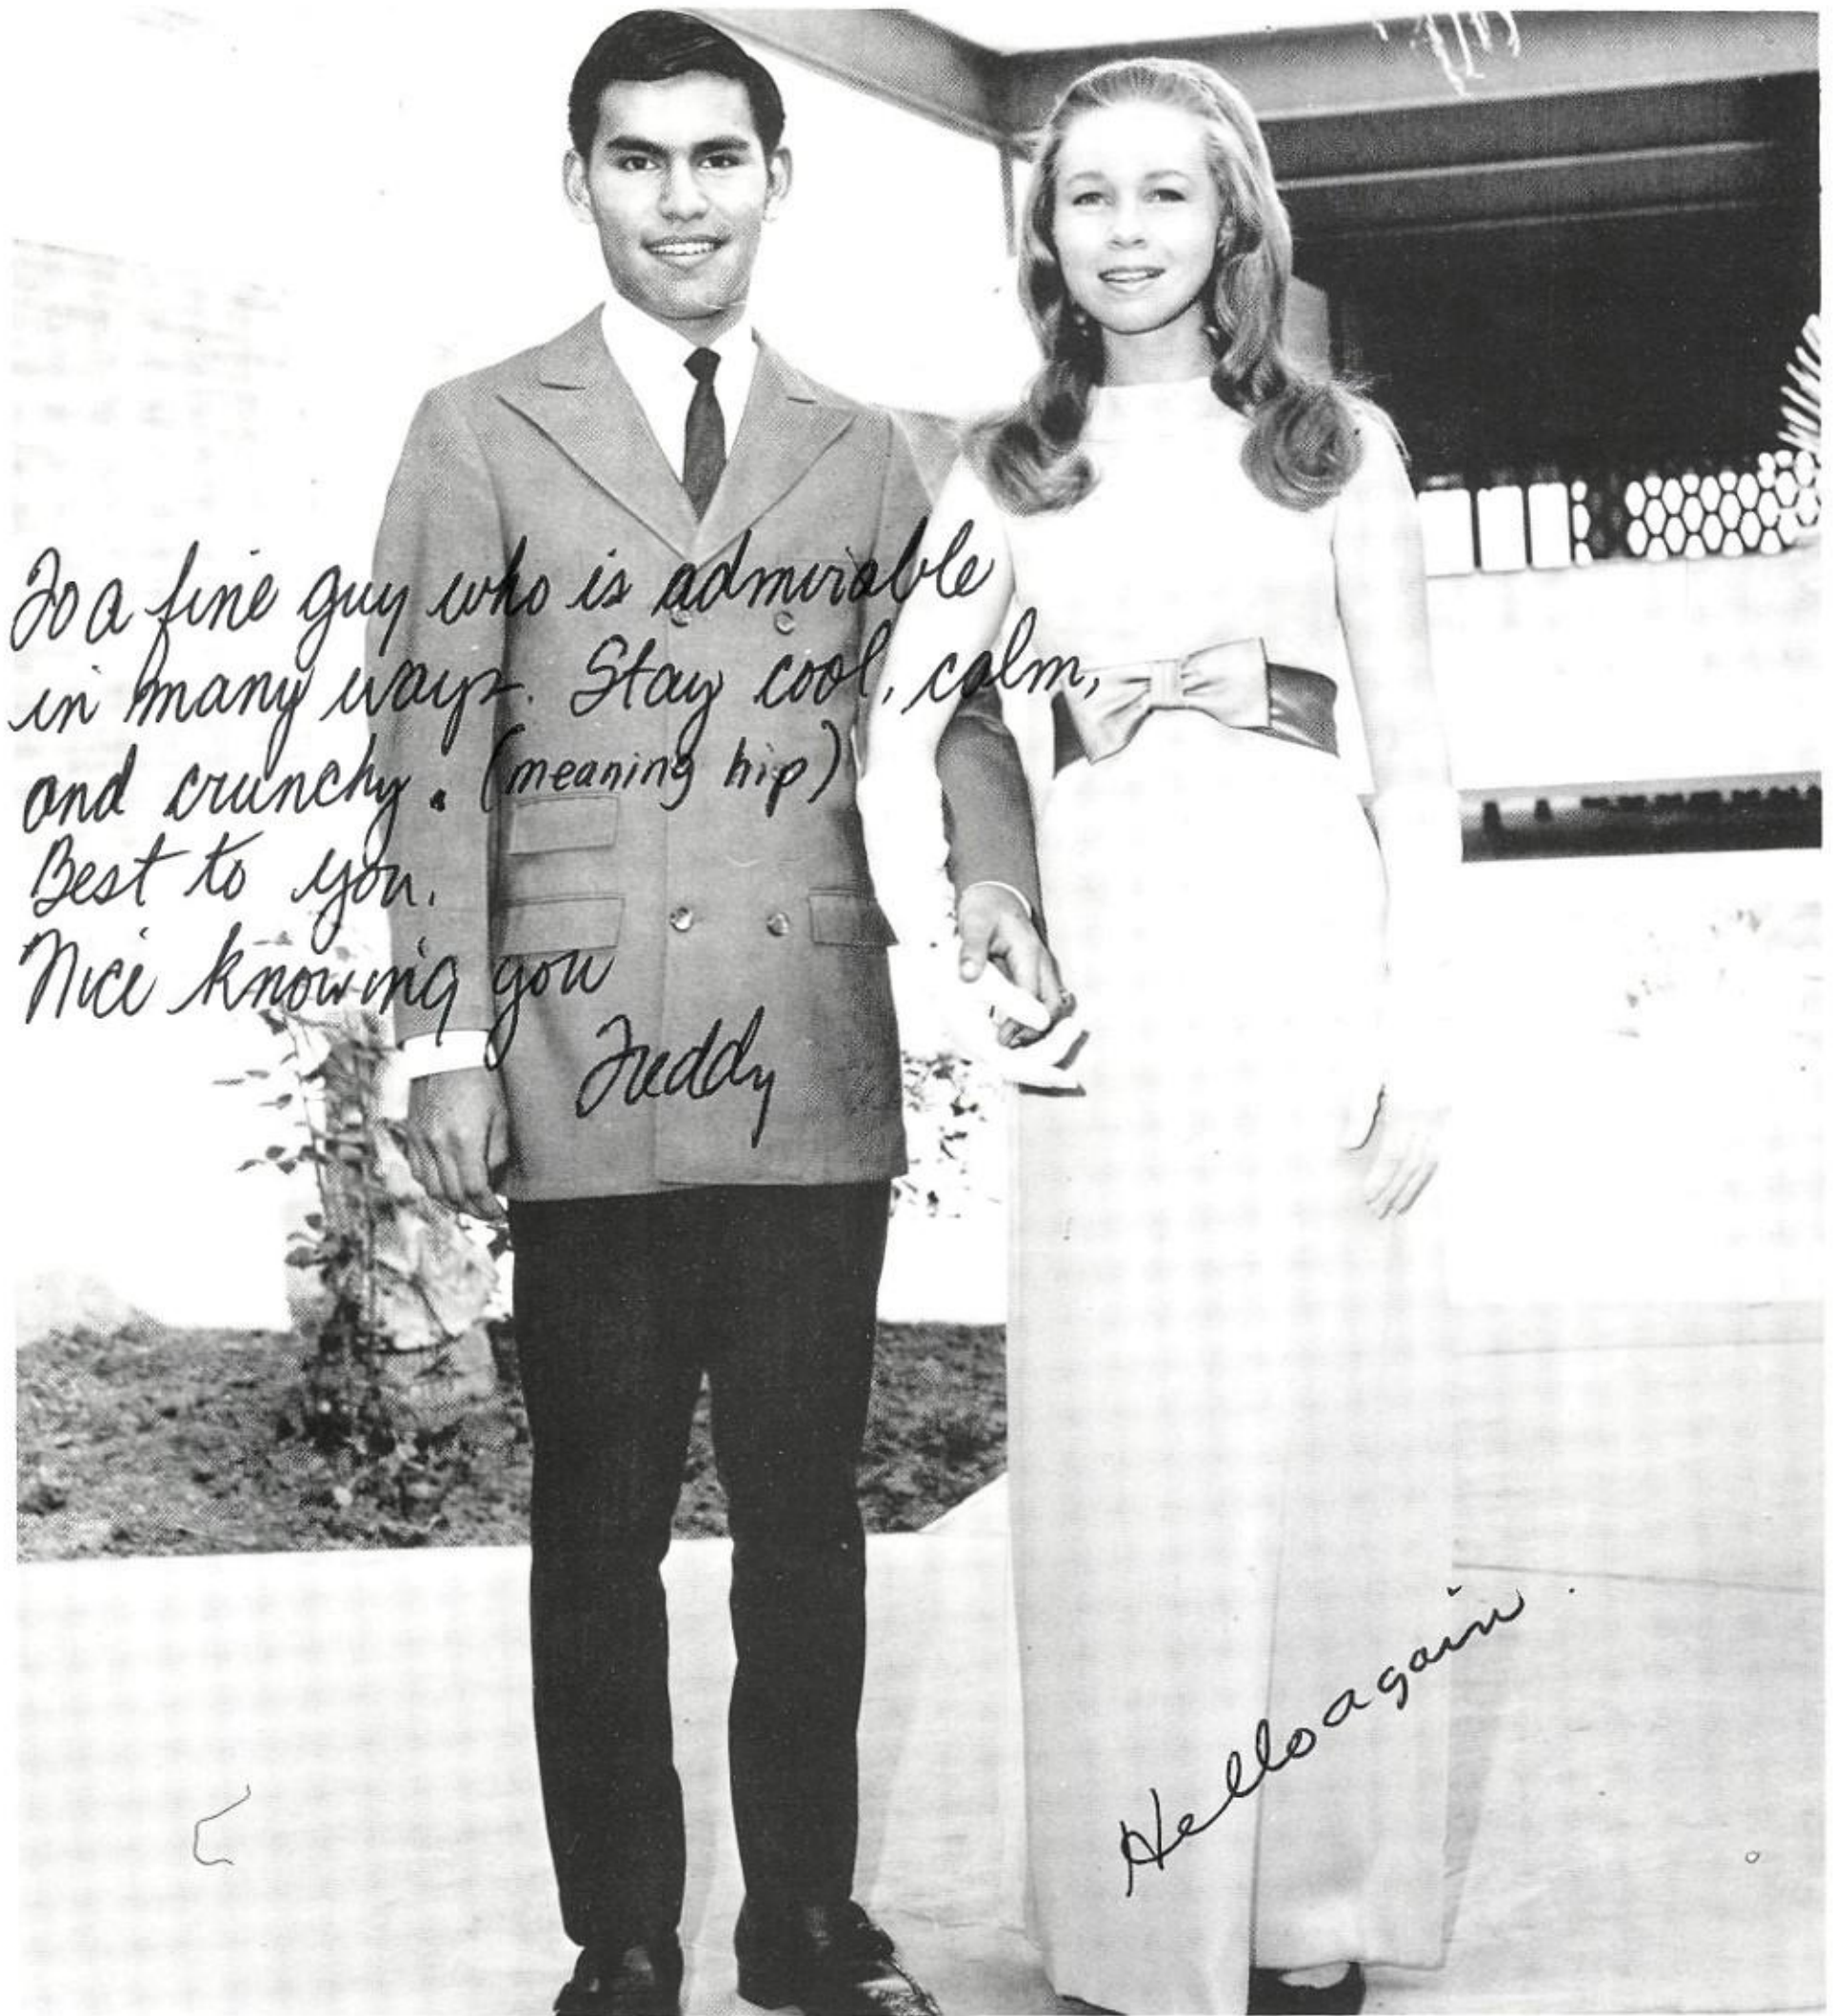 To a fine guy who is admirable
in many ways. Stay cool, calm,
and crunchy. (meaning hip)
Best to you.
Nice knowing you
Freddy
Hello again.